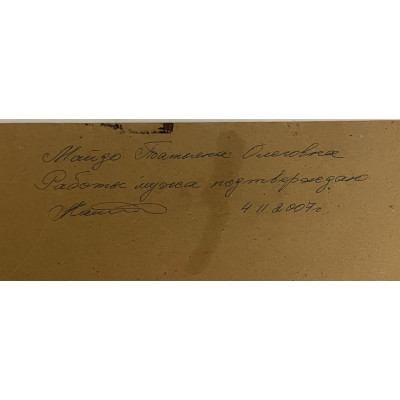 Майдо Татьяна Олеговна
Работы мужа подтверждаю
4 11 2007г.